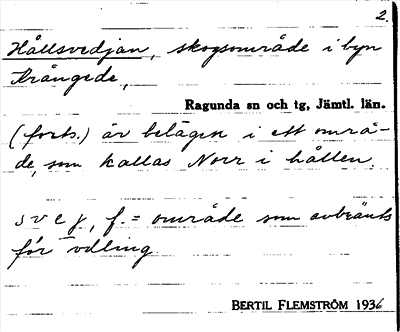 2.
Hållsvedjan, skogsområde i byn
Krångede,
Ragunda sn och tg, Jämtl. län.
(forts.) är belägen i ett områ-
de, som kallas Norr i hållen.
svej, f. = område som avbränts
för odling.
BERTIL FLEMSTRÖM 1936